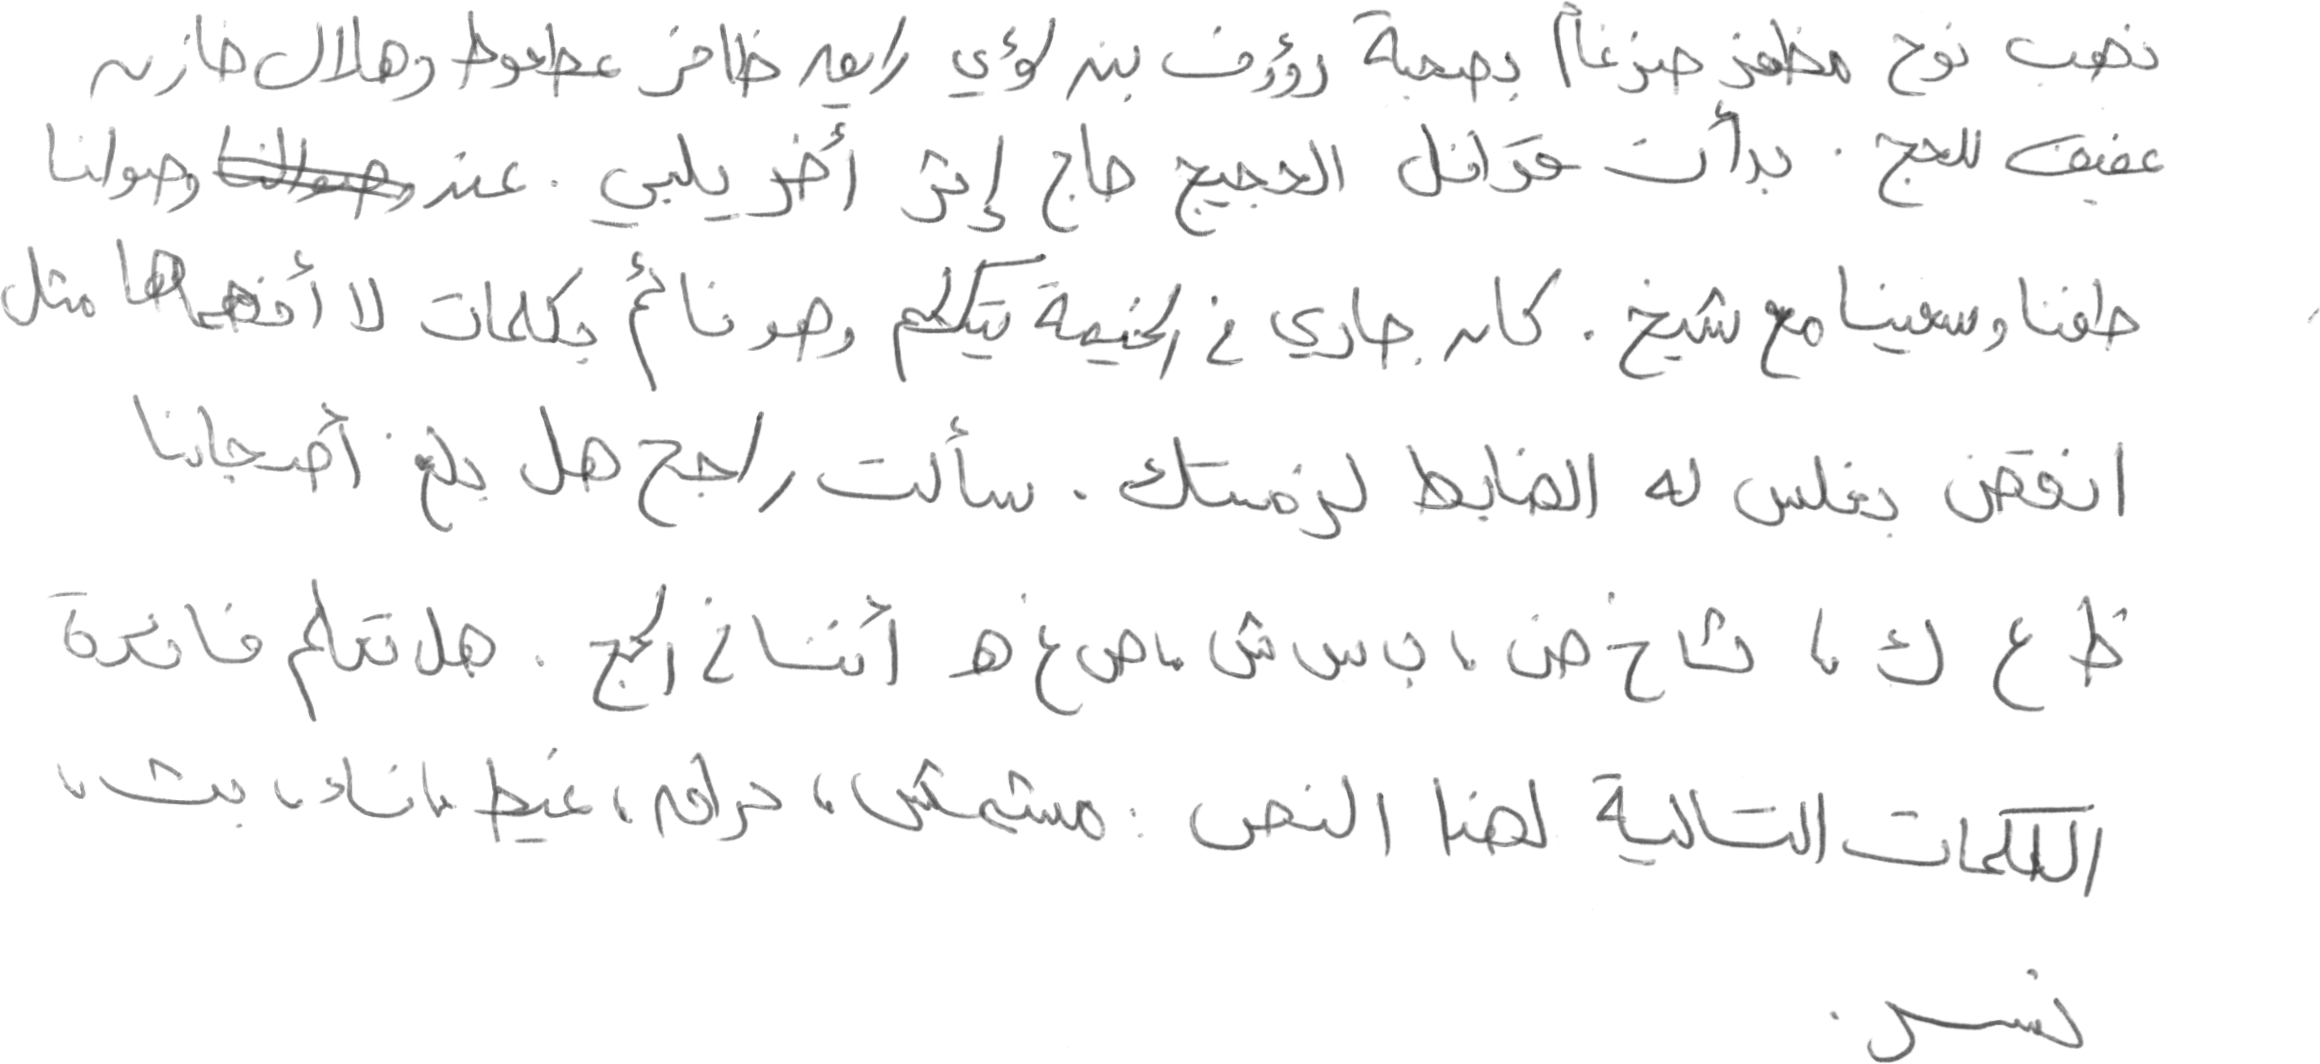 ذهب نوح مظفر ضرغام بصحبة رؤوف بن لؤي رابع ظافر عطعوط وهلال خازن
عفيف للحج . بدأت قوافل الحجيج حاج إثر أخر يلبي . عند وصولنا وصولنا
طفنا وسعينا مع شيخ . كان جاري في الخيمة يتكلم وهو نائم بكلمات لا أفهمها مثل
انقض بغلس له الضابط لزمتك . سألت راجح هل بلغ أصحابنا
ظ ع ك ، ث خ ض ، ب س ش ، ص غ ه أننا في الحج . هل تعلم فائدة
الكلمات التالية لهذا النص : مستمسك ، حرافه ، غيظ ، ناد ، بث ،
نسر .